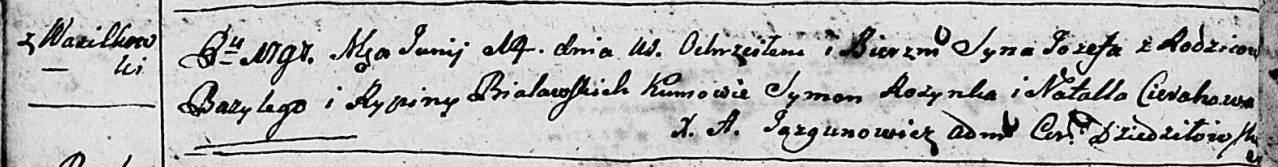 z Wasilkow
ki
Ru 1797. Msca Junij 14. dnia us. Ochrzciłem i Bierzm Syna Jozefa z Rodzicow
Bazylego i Rypiny Białawskich Kumowie Symon Rozynka i Natalla Cierahowa
X. A. Jazgunowicz Adm Cer. Dziedziłow